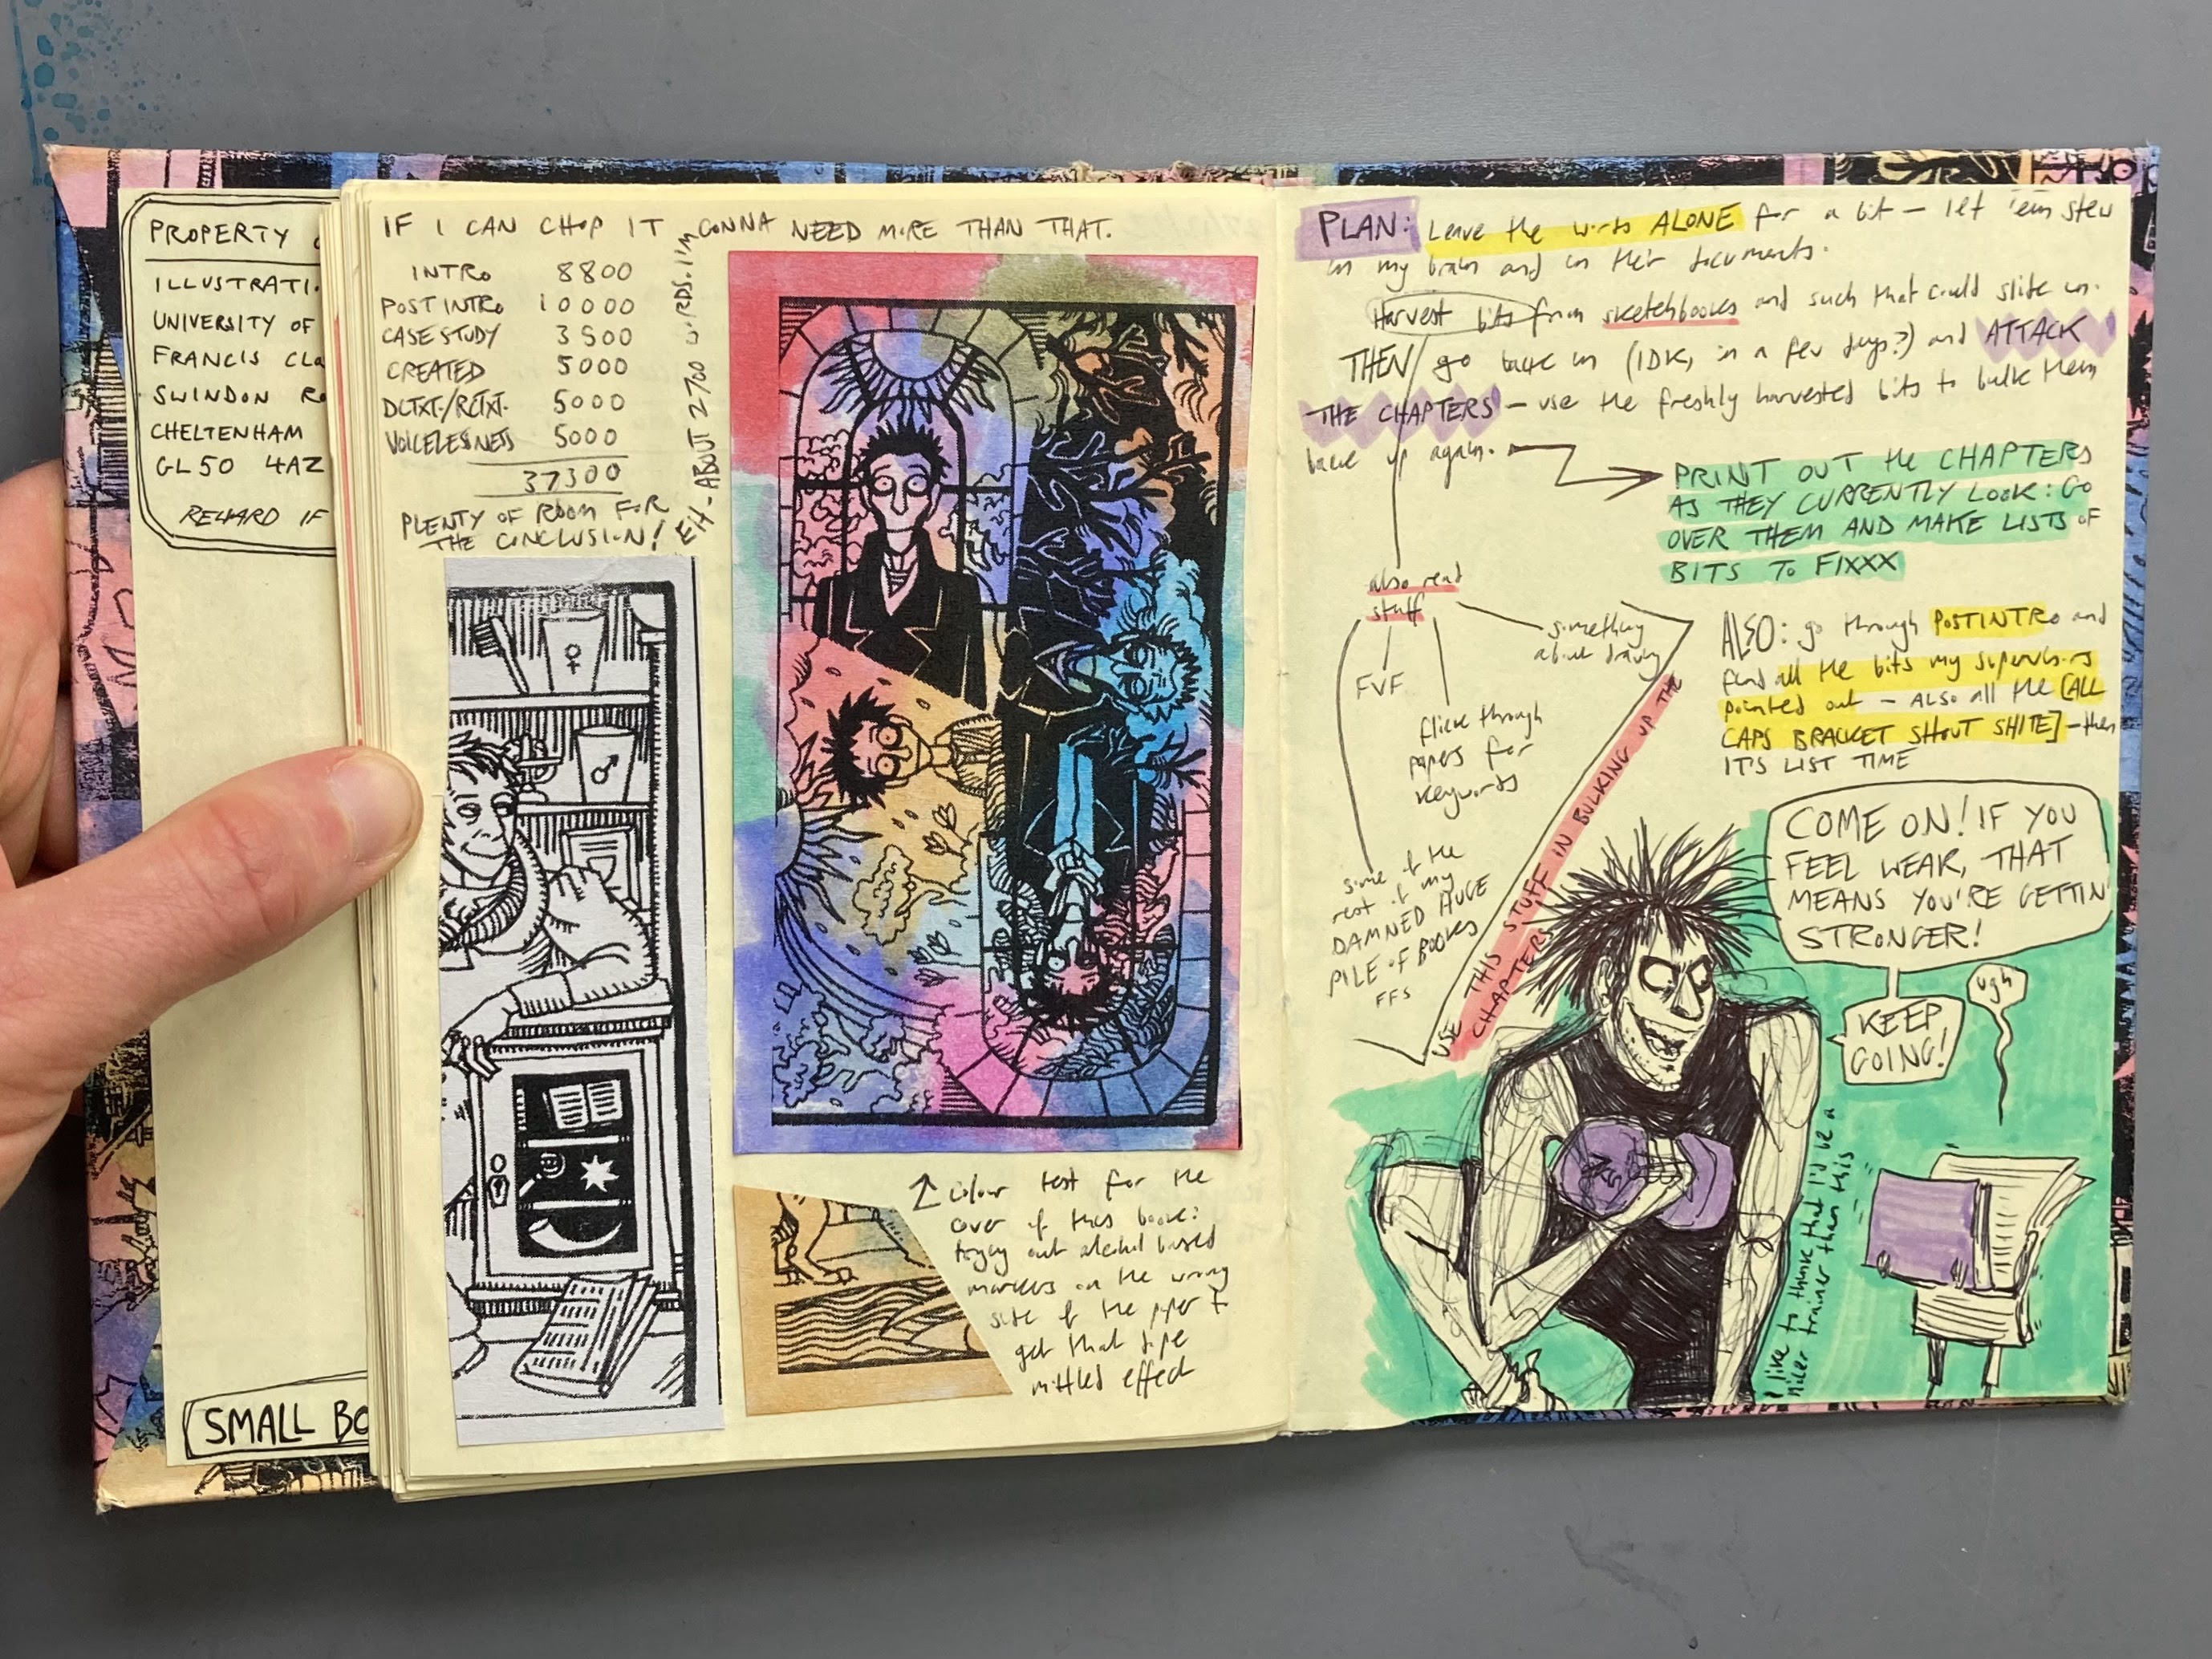 PROPERTY
ILLUSTRATI
UNIVERSITY OF
FRANCIS CLO
SWINDON RO
CHELTENHAM
GL50 4AZ
REWARD IF
SMALL BO
IF I CAN CHOP IT
INTRO 8800
POST INTRO 10000
CASE STUDY 3500
CREATED 5000
DCTXT./RCTXT. 5000
VOICELESSNESS 5000
37300
PLENTY OF ROOM FOR
THE CONCLUSION!
EH - ABOUT 2700 WORDS. I'M GONNA NEED MORE THAN THAT.
↑ Colour test for the
cover of this book:
trying out alcohol based
markers on the wrong
side of the paper to
get that dope
mottled effect
PLAN: Leave the words ALONE for a bit — let 'em stew
in my brain and in their documents.
Harvest bits from sketchbooks and such that could slide in.
THEN go back in (IDK, in a few days?) and ATTACK
THE CHAPTERS — use the freshly harvested bits to bulk them
back up again.
PRINT OUT the CHAPTERS
AS THEY CURRENTLY LOOK: GO
OVER THEM AND MAKE LISTS OF
BITS TO FIXXX
also read
stuff
FVF
flick through
papers for
keywords
something
about drawing
some of the
rest of my
DAMNED HUGE
PILE OF BOOKS
FFS
USE THIS STUFF IN BULKING UP THE
CHAPTERS
ALSO: go through POSTINTRO and
find all the bits my supervisors
pointed out — ALSO all the [ALL
CAPS BRACKET SHOUT SHITE] — then
IT'S LIST TIME
COME ON! IF YOU
FEEL WEAK, THAT
MEANS YOU'RE GETTIN'
STRONGER!
KEEP
GOING!
ugh
I like to think that I'd be a
nicer trainer than this